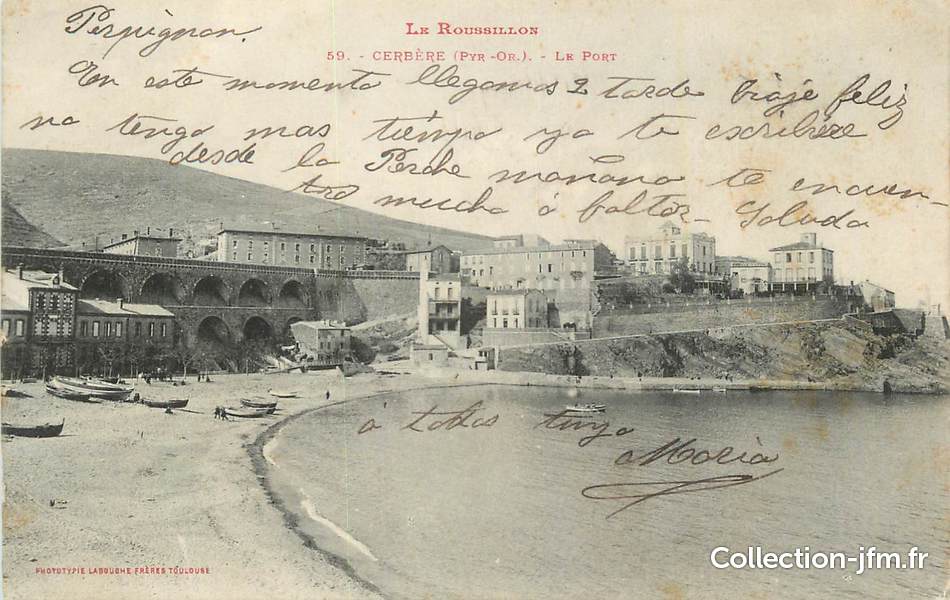 LE ROUSSILLON
59. - CERBÈRE (PYR.-OR.). - LE PORT
Perpignan.
En este momento llegamos 2 tarde viaje feliz
no tengo mas tiempo ya te escribire
desde la Perche mañana te encuen-
tro mucho a faltar - Saluda
a todos tuya
Maria
PHOTOTYPIE LABOUCHE FRÈRES TOULOUSE
Collection-jfm.fr